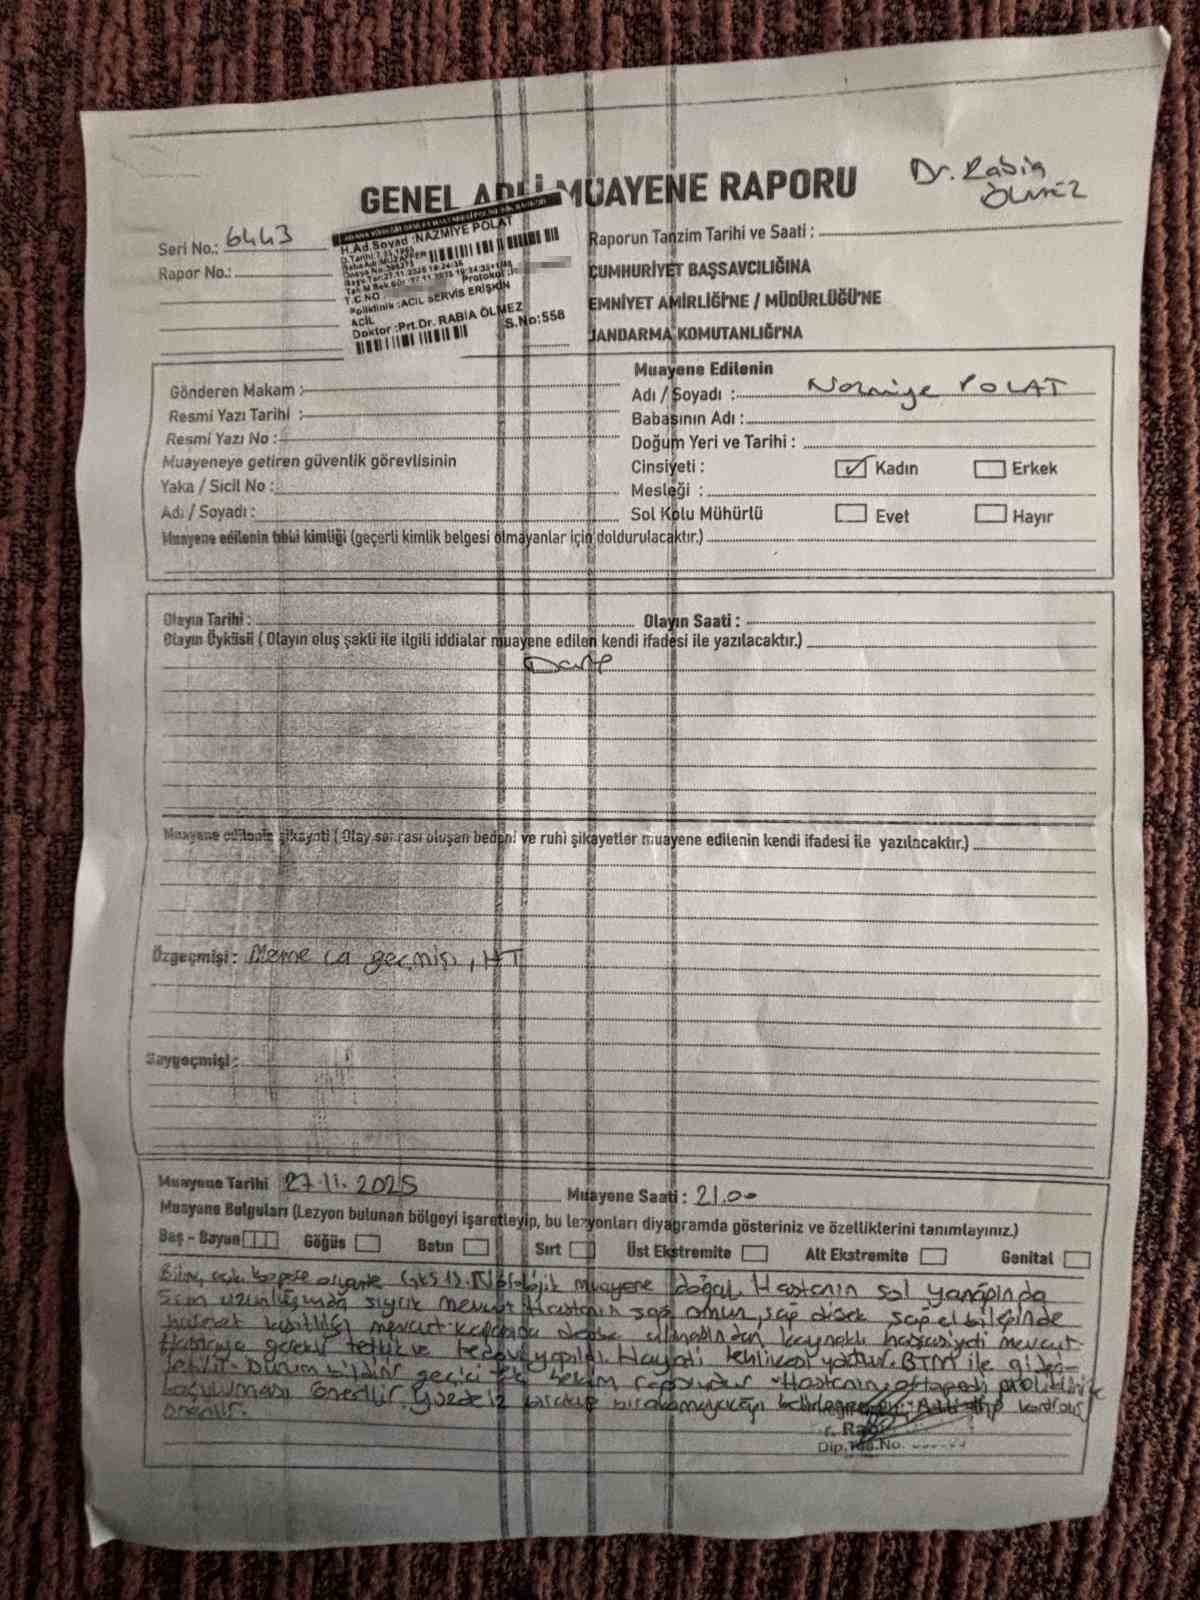 Dr. Rabia
ÖLMEZ
GENEL ADLİ MUAYENE RAPORU
Seri No.: 6443
Rapor No.:
H.Ad.Soyad :NAZMİYE POLAT
T.C NO
Protokol
Poliklinik :ACİL SERVİS ERİŞKİN
ACİL
Doktor :Prt.Dr. RABİA ÖLMEZ
S.No:558
Raporun Tanzim Tarihi ve Saati :
CUMHURİYET BAŞSAVCILIĞINA
EMNİYET AMİRLİĞİ'NE / MÜDÜRLÜĞÜ'NE
JANDARMA KOMUTANLIĞI'NA
Gönderen Makam :
Resmi Yazı Tarihi :
Resmi Yazı No :
Muayeneye getiren güvenlik görevlisinin
Yaka / Sicil No :
Adı / Soyadı :
Muayene Edilenin
Adı / Soyadı : Nazmiye POLAT
Babasının Adı :
Doğum Yeri ve Tarihi :
Cinsiyeti : Kadın Erkek
Mesleği :
Sol Kolu Mühürlü Evet Hayır
Muayene edilenin tıbbi kimliği (geçerli kimlik belgesi olmayanlar için doldurulacaktır.)
Olayın Tarihi : Olayın Saati :
Olayın Öyküsü ( Olayın oluş şekli ile ilgili iddialar muayene edilen kendi ifadesi ile yazılacaktır.)
Darp
Muayene edilenin şikayeti ( Olay sonrası oluşan bedeni ve ruhi şikayetler muayene edilenin kendi ifadesi ile yazılacaktır.)
Özgeçmişi : Meme ca geçmişi, HT
Soygeçmişi :
Muayene Tarihi 27.11.2025 Muayene Saati : 21.00
Muayene Bulguları (Lezyon bulunan bölgeyi işaretleyip, bu lezyonları diyagramda gösteriniz ve özelliklerini tanımlayınız.)
Baş - Boyun Göğüs Batın Sırt Üst Ekstremite Alt Ekstremite Genital
Bilinç açık koopere oryante GKS 15. Nörolojik muayene doğal. Hastanın sol yanağında
5cm uzunluğunda sıyrık mevcut. Hastanın sağ omuz, sağ dirsek sağ el bileğinde
hareket kısıtlılığı mevcut. kaynaklı hassasiyeti mevcut.
Hastaya gerekli tetkik ve tedavi yapıldı. Hayati tehlikesi yoktur. BTM ile gideri-
lebilir. Durum bildirir geçici hekim raporudur. Hastanın ortopedi poliklinik
başvurması önerilir. Yüzde iz bırakıp bırakmayacağı Adli tıp kontrolü
önerilir.
Dip.Tes.No.